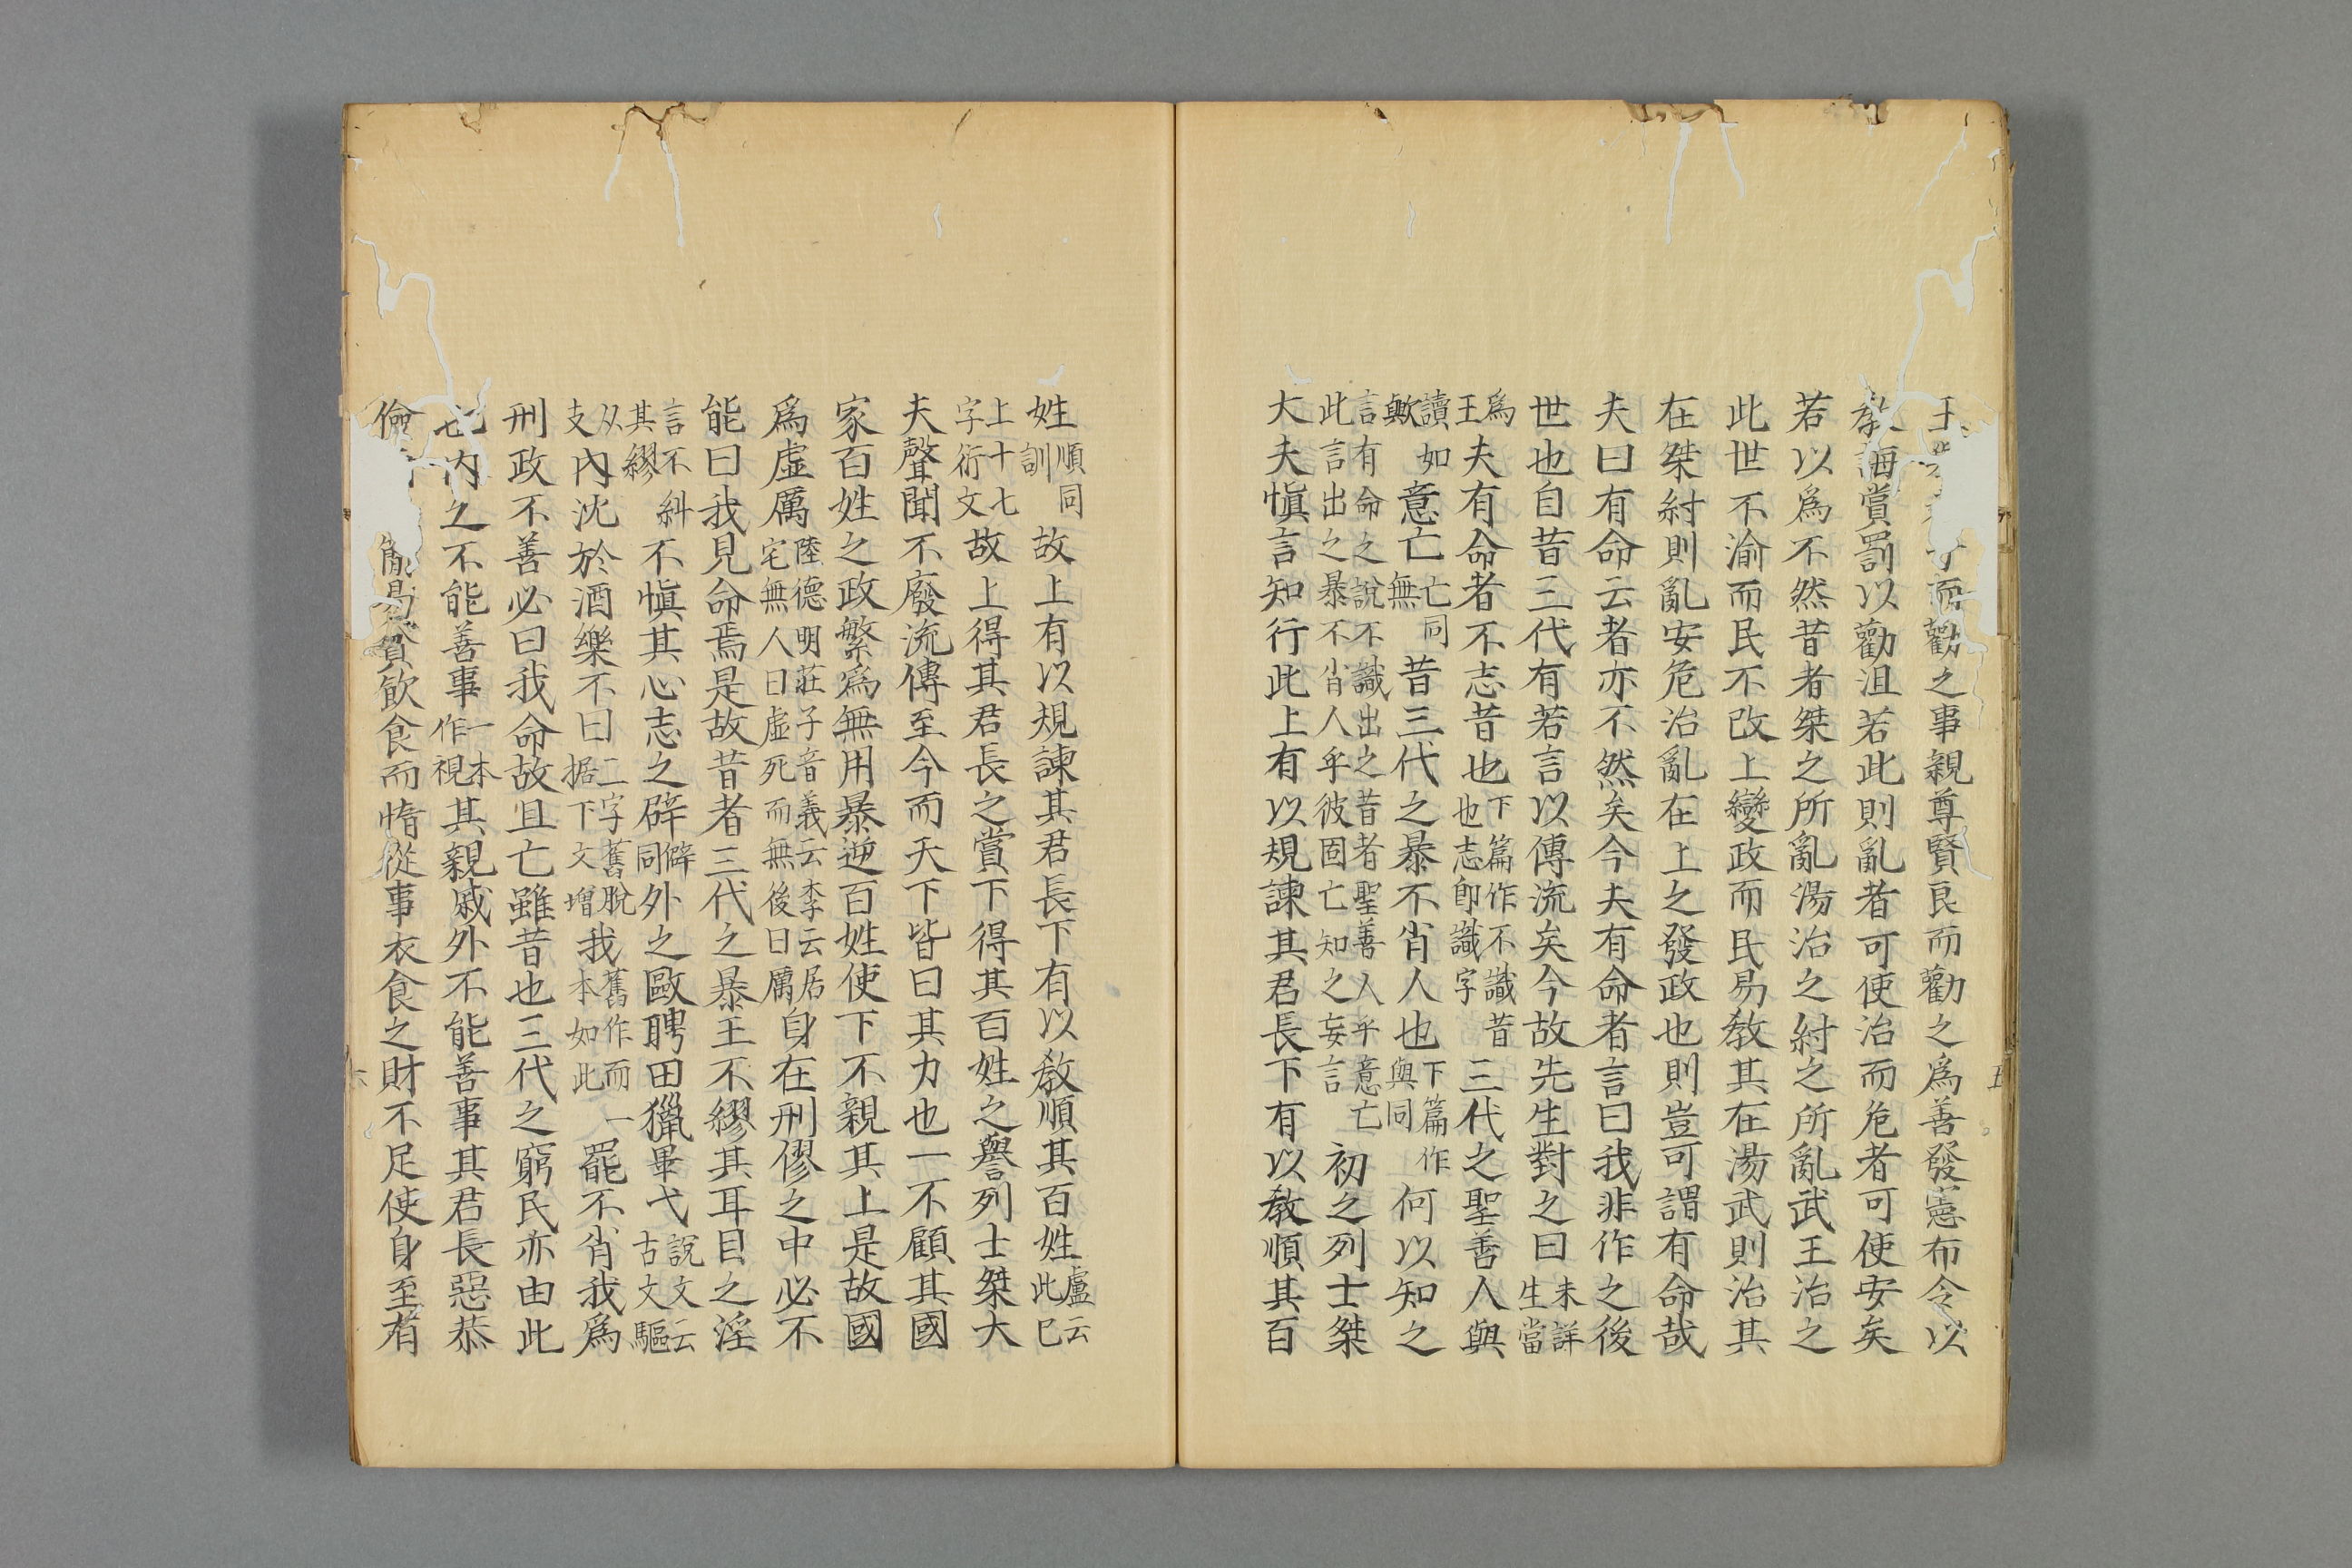 王 而勸之事親尊賢良而勸之爲善發憲布令以
教誨賞罰以勸沮若此則亂者可使治而危者可使安矣
若以爲不然昔者桀之所亂湯治之紂之所亂武王治之
此世不渝而民不改上變政而民易敎其在湯武則治其
在桀紂則亂安危治亂在上之發政也則豈可謂有命哉
夫曰有命云者亦不然矣今夫有命者言曰我非作之後
世也自昔三代有若言以傳流矣今故先生對之曰未詳生當
爲王夫有命者不志昔也下篇作不識昔也志卽識字三代之聖善人與
讀如歟意亡亡同無昔三代之暴不肖人也下篇作與同何以知之
言有命之說不識出之昔者聖善人乎意亡此言出之暴不肖人乎彼固亡知之妄言初之列士桀
大夫愼言知行此上有以規諫其君長下有以敎順其百
五
姓順同訓故上有以規諫其君長下有以敎順其百姓盧云此已
上十七字衍文故上得其君長之賞下得其百姓之譽列士桀大
夫聲聞不廢流傳至今而天下皆曰其力也一不顧其國
家百姓之政繁爲無用暴逆百姓使下不親其上是故國
爲虛厲陸德明莊子音義云李云居宅無人曰虛死而無後曰厲身在刑僇之中必不
能曰我見命焉是故昔者三代之暴王不繆其耳目之淫
言不糾其繆不愼其心志之辟僻同外之歐聘田獵畢弋說文云古文驅
从支內沈於酒樂不曰二字舊脫据下文增我舊作而一本如此罷不肖我爲
刑政不善必曰我命故且亡雖昔也三代之窮民亦由此
也內之不能善事一本作視其親戚外不能善事其君長惡恭
儉 易貪飲食而惰從事衣食之財不足使身至有
六